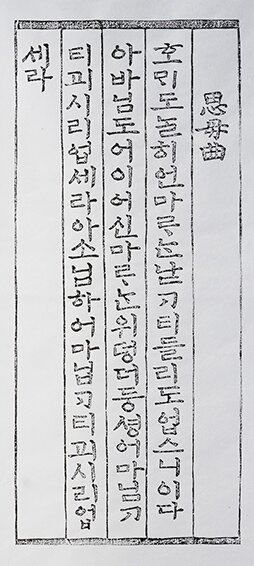 思母曲
호ᄆᆡ도ᄂᆞᆯ히언마ᄅᆞᄂᆞᆫ낟ᄀᆞ티들리도업스니이다
아바님도어이어신마ᄅᆞᄂᆞᆫ위덩더둥셩어마님ᄀᆞ
티괴시리업세라아소님하어마님ᄀᆞ티괴시리업
세라